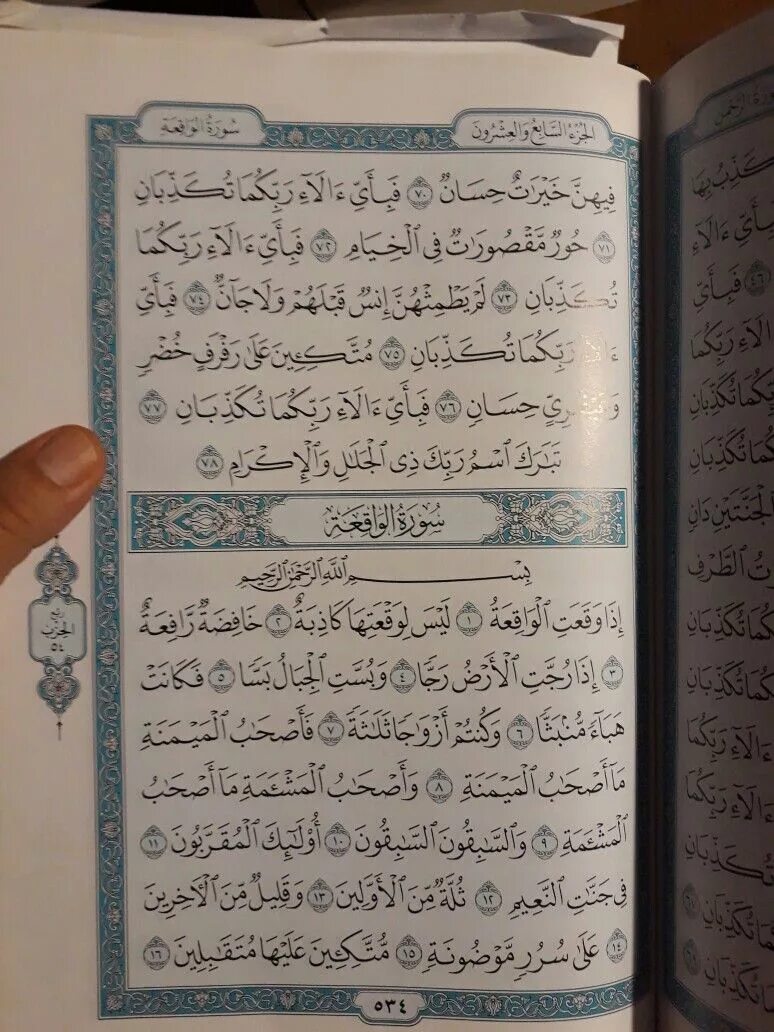 الجزء السابع والعشرون
سورة الواقعة
فِيهِنَّ خَيْرَٰتٌ حِسَانٌ ٧٠ فَبِأَيِّ ءَالَآءِ رَبِّكُمَا تُكَذِّبَانِ
٧١ حُورٌ مَّقْصُورَٰتٌ فِي ٱلْخِيَامِ ٧٢ فَبِأَيِّ ءَالَآءِ رَبِّكُمَا
تُكَذِّبَانِ ٧٣ لَمْ يَطْمِثْهُنَّ إِنسٌ قَبْلَهُمْ وَلَا جَآنٌّ ٧٤ فَبِأَيِّ
رَبِّكُمَا تُكَذِّبَانِ ٧٥ مُتَّكِـِٔينَ عَلَىٰ رَفْرَفٍ خُضْرٍ
حِسَانٍ ٧٦ فَبِأَيِّ ءَالَآءِ رَبِّكُمَا تُكَذِّبَانِ ٧٧
تَبَٰرَكَ ٱسْمُ رَبِّكَ ذِي ٱلْجَلَٰلِ وَٱلْإِكْرَامِ ٧٨
سُورَةُ الوَاقِعَةِ
بِسْمِ ٱللَّهِ ٱلرَّحْمَٰنِ ٱلرَّحِيمِ
إِذَا وَقَعَتِ ٱلْوَاقِعَةُ ١ لَيْسَ لِوَقْعَتِهَا كَاذِبَةٌ ٢ خَافِضَةٌ رَّافِعَةٌ
٣ إِذَا رُجَّتِ ٱلْأَرْضُ رَجًّا ٤ وَبُسَّتِ ٱلْجِبَالُ بَسًّا ٥ فَكَانَتْ
هَبَآءً مُّنۢبَثًّا ٦ وَكُنتُمْ أَزْوَٰجًا ثَلَٰثَةً ٧ فَأَصْحَٰبُ ٱلْمَيْمَنَةِ
مَآ أَصْحَٰبُ ٱلْمَيْمَنَةِ ٨ وَأَصْحَٰبُ ٱلْمَشْـَٔمَةِ مَآ أَصْحَٰبُ
ٱلْمَشْـَٔمَةِ ٩ وَٱلسَّٰبِقُونَ ٱلسَّٰبِقُونَ ١٠ أُو۟لَٰٓئِكَ ٱلْمُقَرَّبُونَ ١١
فِي جَنَّٰتِ ٱلنَّعِيمِ ١٢ ثُلَّةٌ مِّنَ ٱلْأَوَّلِينَ ١٣ وَقَلِيلٌ مِّنَ ٱلْـَٔاخِرِينَ
١٤ عَلَىٰ سُرُرٍ مَّوْضُونَةٍ ١٥ مُّتَّكِـِٔينَ عَلَيْهَا مُتَقَٰبِلِينَ ١٦
٥٣٤
ربع
الحزب
٥٤
كَذِّبُ بِهَا
ءَالَآءِ
٤٦ فَبِأَيِّ
ءَالَآءِ رَبِّكُمَا
تُكَذِّبَانِ
تُكَذِّبَانِ
ٱلْجَنَّتَيْنِ دَانٍ
ٱلطَّرْفِ
تُكَذِّبَانِ
تُكَذِّبَانِ
ءَالَآءِ رَبِّكُمَا
ءَالَآءِ رَبِّكُمَا
تُكَذِّبَانِ
تُكَذِّبَانِ
تُكَذِّبَانِ